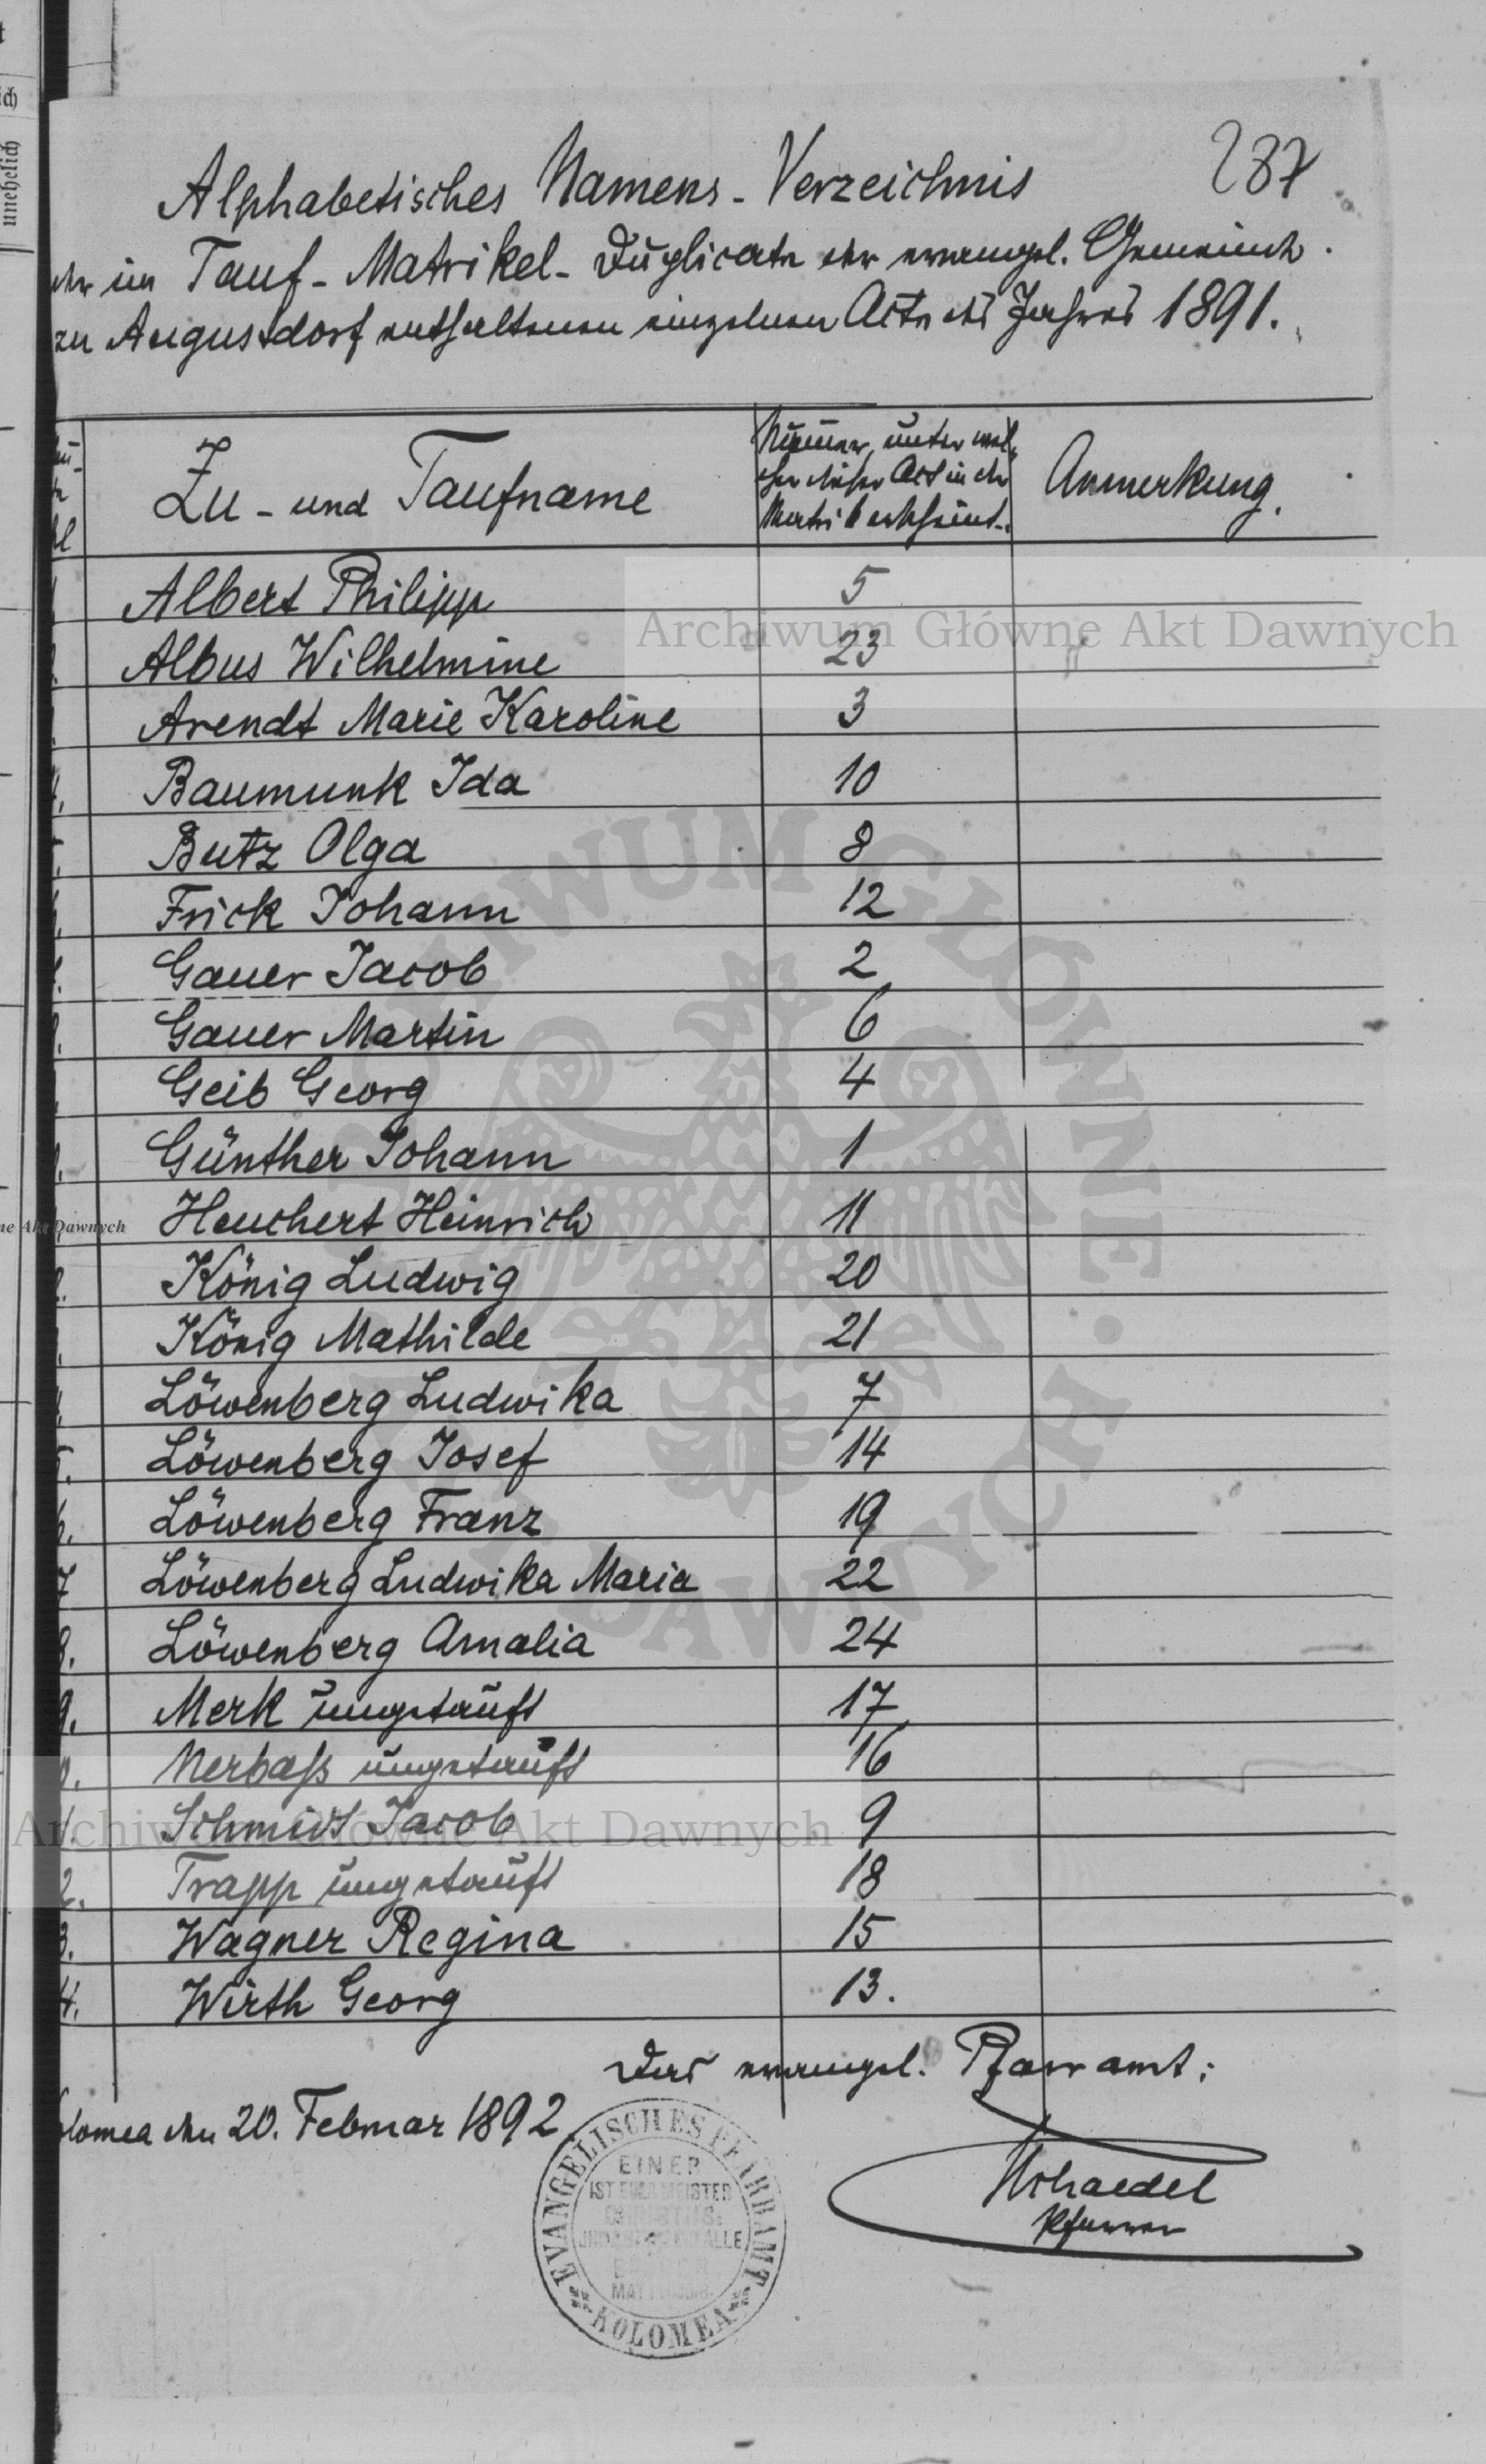 287
Alphabetisches Namens-Verzeichnis
der im Tauf-Matrikel-Duplicate der evangel. Gemeinde
zu Augustdorf enthaltenen einzelnen Acte des Jahres 1891.
Zu- und Taufname
Nummer, unter wel-
cher dieser Act in der
Matrik erscheint.
Anmerkung.
Albert Philipp 5
Albus Wilhelmine 23
Arendt Marie Karoline 3
Baumunk Ida 10
Butz Olga 8
Frick Johann 12
Gauer Jacob 2
Gauer Martin 6
Geib Georg 4
Günther Johann 1
Heuchert Heinrich 11
König Ludwig 20
König Mathilde 21
Löwenberg Ludwika 7
Löwenberg Josef 14
Löwenberg Franz 19
7 Löwenberg Ludwika Maria 22
8. Löwenberg Amalia 24
9. Merk ungetauft 17
Nerbaß ungetauft 16
Schmidt Jacob 9
2. Trapp ungetauft 18
3. Wagner Regina 15
4. Wirth Georg 13.
Das evangel. Pfarramt:
olomea den 20. Februar 1892
Pfarrer
EVANGELISCHES PFARRAMT
KOLOMEA
EINER
IST EUER MEISTER
CHRISTUS
ALLE
Archiwum Główne Akt Dawnych
ARCHIWUM GŁÓWNE
AKT DAWNYCH
Archiwum Główne Akt Dawnych
ne Akt Dawnych
unehelich